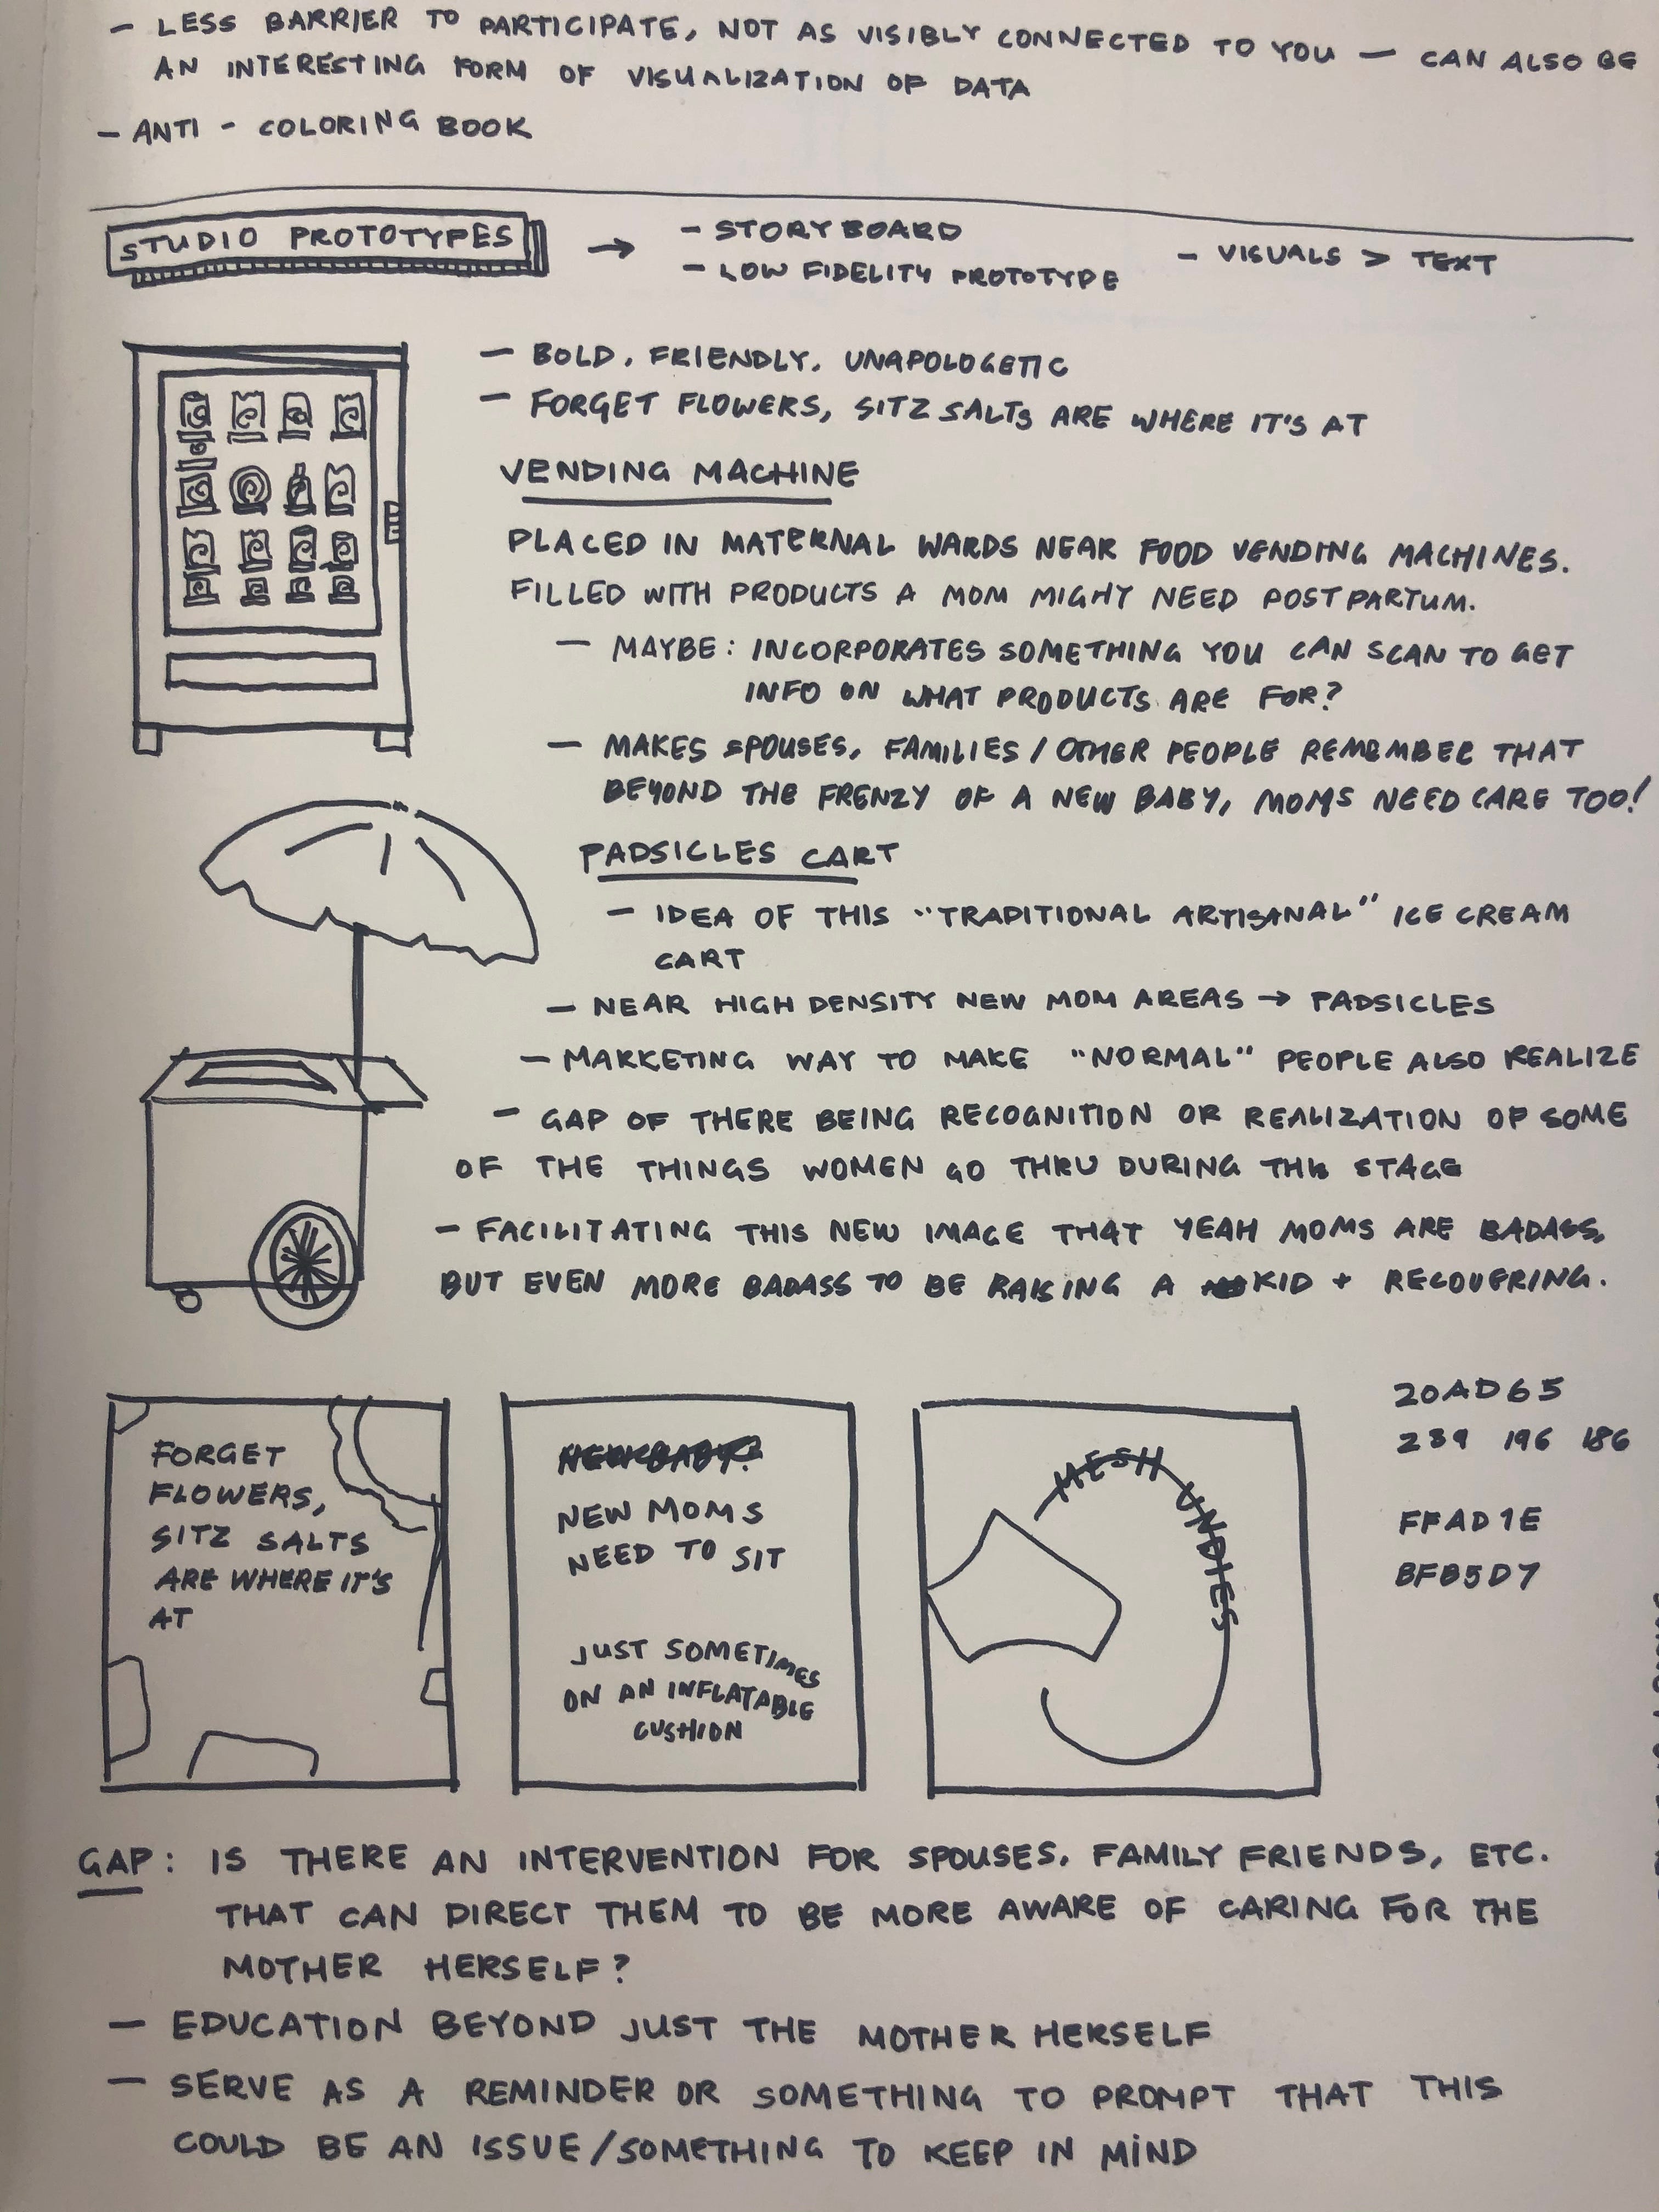 - LESS BARRIER TO PARTICIPATE, NOT AS VISIBLY CONNECTED TO YOU — CAN ALSO BE
AN INTERESTING FORM OF VISUALIZATION OF DATA
- ANTI - COLORING BOOK
STUDIO PROTOTYPES → - STORYBOARD
- LOW FIDELITY PROTOTYPE
- VISUALS > TEXT
- BOLD, FRIENDLY, UNAPOLOGETIC
- FORGET FLOWERS, SITZ SALTS ARE WHERE IT'S AT
VENDING MACHINE
PLACED IN MATERNAL WARDS NEAR FOOD VENDING MACHINES.
FILLED WITH PRODUCTS A MOM MIGHT NEED POSTPARTUM.
- MAYBE: INCORPORATES SOMETHING YOU CAN SCAN TO GET
INFO ON WHAT PRODUCTS ARE FOR?
- MAKES SPOUSES, FAMILIES/OTHER PEOPLE REMEMBER THAT
BEYOND THE FRENZY OF A NEW BABY, MOMS NEED CARE TOO!
PADSICLES CART
- IDEA OF THIS "TRADITIONAL ARTISANAL" ICE CREAM
CART
- NEAR HIGH DENSITY NEW MOM AREAS → PADSICLES
- MARKETING WAY TO MAKE "NORMAL" PEOPLE ALSO REALIZE
- GAP OF THERE BEING RECOGNITION OR REALIZATION OF SOME
OF THE THINGS WOMEN GO THRU DURING THIS STAGE
- FACILITATING THIS NEW IMAGE THAT YEAH MOMS ARE BADASS,
BUT EVEN MORE BADASS TO BE RAISING A KID + RECOVERING.
FORGET
FLOWERS,
SITZ SALTS
ARE WHERE IT'S
AT
NEW BABY?
NEW MOMS
NEED TO SIT
JUST SOMETIMES
ON AN INFLATABLE
CUSHION
MESH UNDIES
20AD65
239 196 186
FFAD1E
BFB5D7
GAP: IS THERE AN INTERVENTION FOR SPOUSES, FAMILY FRIENDS, ETC.
THAT CAN DIRECT THEM TO BE MORE AWARE OF CARING FOR THE
MOTHER HERSELF?
- EDUCATION BEYOND JUST THE MOTHER HERSELF
- SERVE AS A REMINDER OR SOMETHING TO PROMPT THAT THIS
COULD BE AN ISSUE/SOMETHING TO KEEP IN MIND